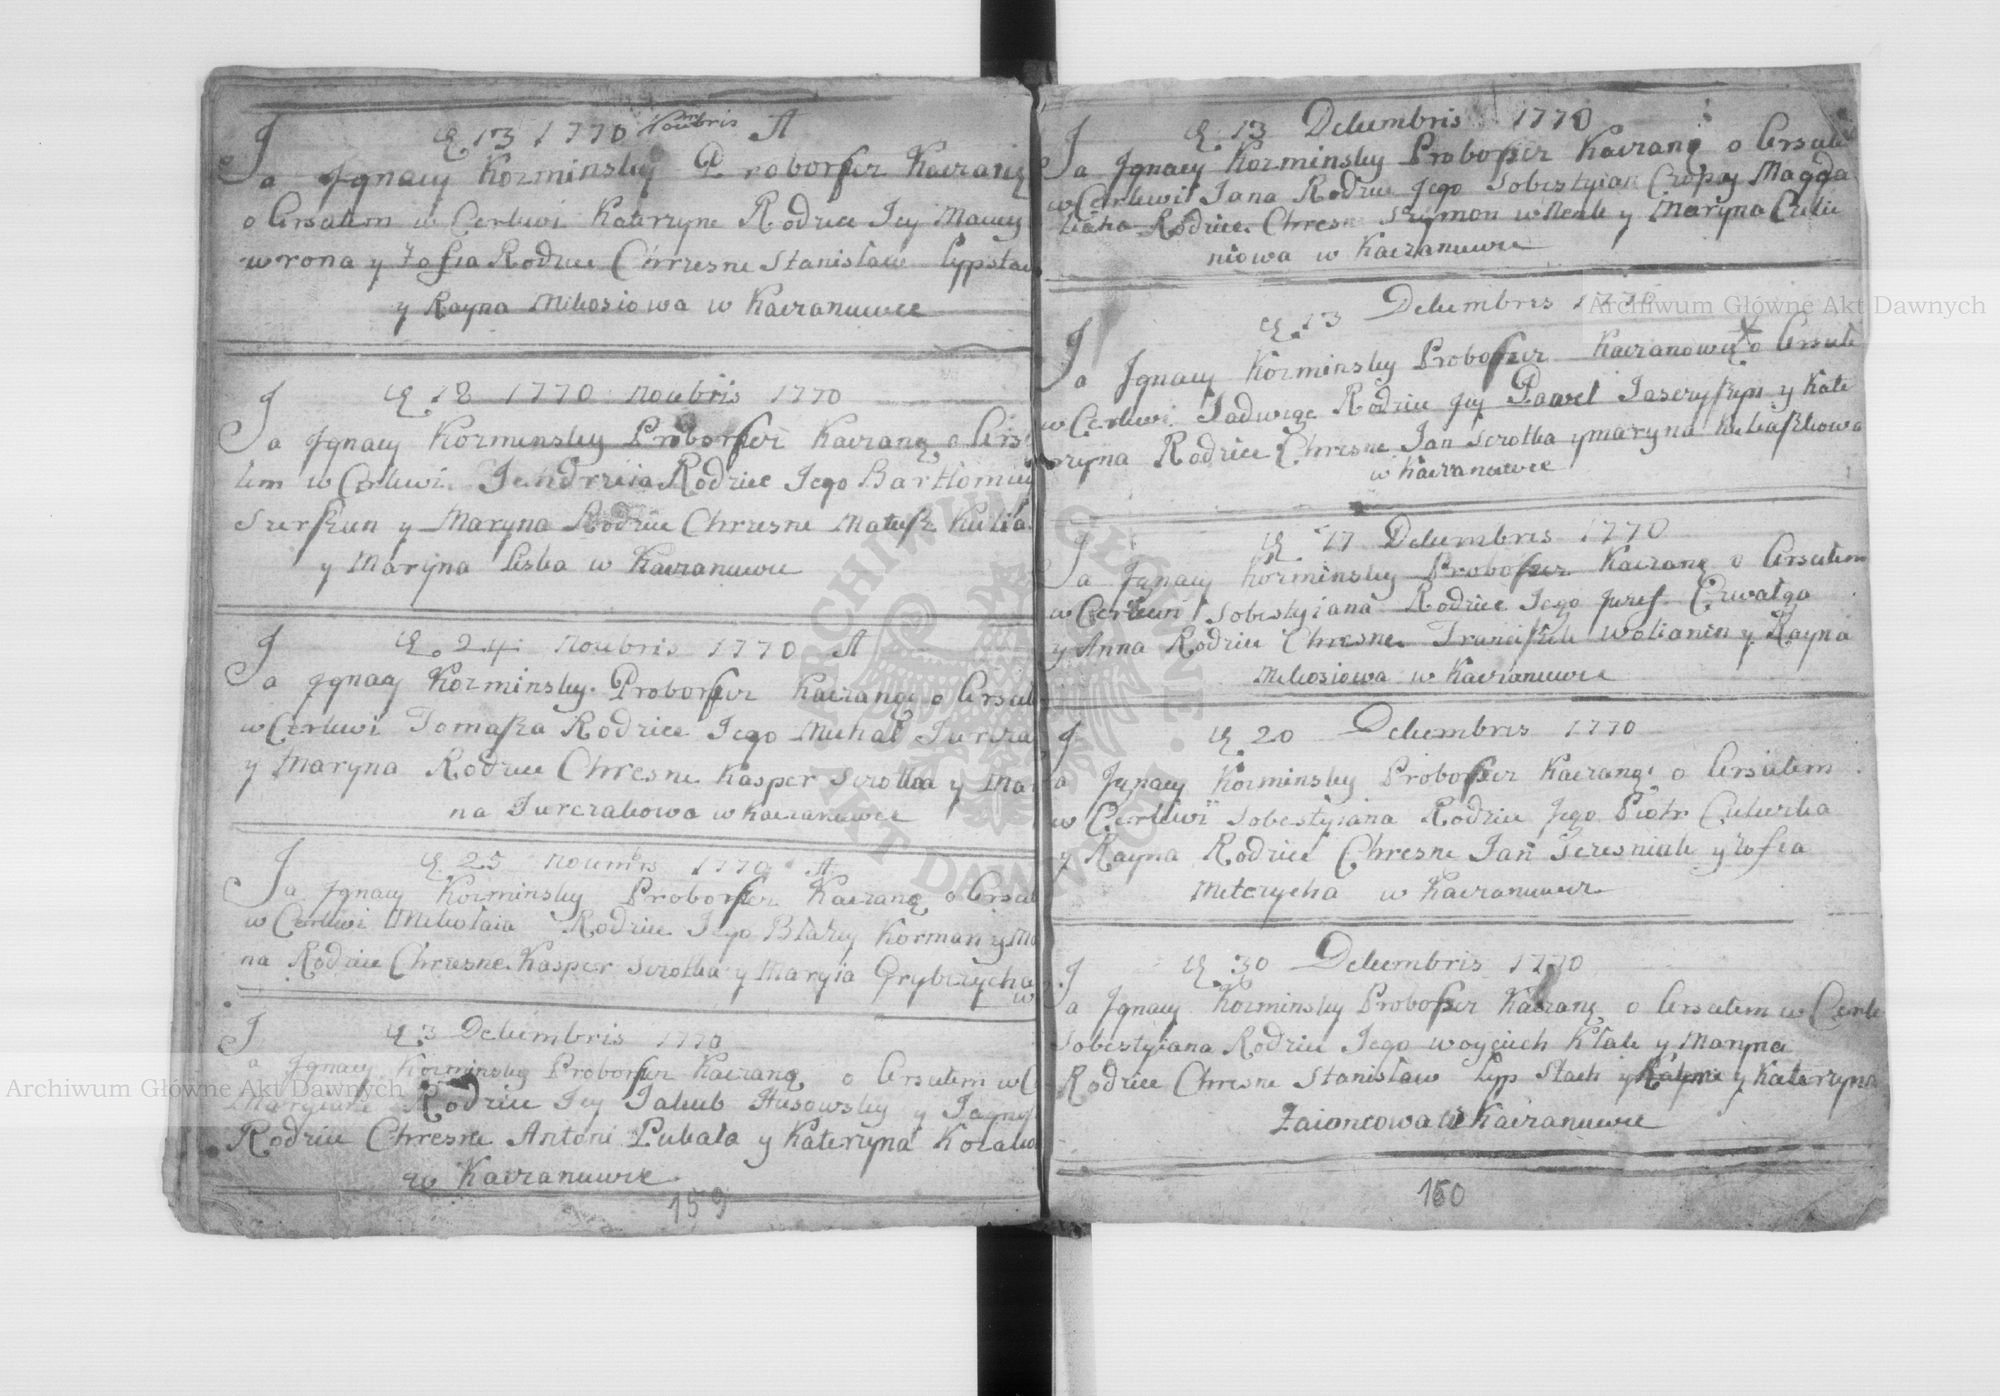 D. 13 1770 Noubris A
Ja Jgnacy Kozminsky Proborszcz Kaczanę
o Crsulem w Cerkwi Katerzyne Rodzice Jey Maciey
wrona y Zofia Rodzice Chrzesne Stanislaw Lypslaw
y Rayna Mikosiowa w Kaczanuwce
D. 18 1770 Noubris 1770
Ja Jgnacy Kozminsky Proborszcz Kaczanę o Crsu
lem w Cerkwi Jendrzeia Rodzice Jego Bartlomiey
y Maryna Rodzice Chrzesne Matusz
y Maryna Liska w Kaczanuwce
D. 24 Noubris 1770 A
Ja Jgnacy Kozminsky Proborszcz Kaczanę o Crsul
w Cerkwi Tomasza Rodzice Jego Michał Jurcza
y Maryna Rodzice Chresne Kasper Scrotka y Ma
na Jurczakowa w Kaczanuwce
D. 25 Noumbris 1770 A
Ja Jgnacy Kozminsky Proborszcz Kaczanę o Crsul
w Cerkwi Mikolaia Rodzice Jego Błazey Korman y Ma
na Rodzice Chrzesne Kasper Scrotka y Maryia Grybczycha
w
D. 3 Decumbris 1770
Ja Jgnacy Kozminsky Proborszcz Kaczanę o Crsulem w C
Maryiane Rodzice Jey Jakub Husowsky y Jagny
Rodzice Chresne Antoni Pukala y Katerzyna Kozako
w Kaczanuwce
159
D. 13 Decumbris 1770
Ja Jgnacy Kozminsky Proboszcz Kaczanę o Crsule
w Cerkwi Jana Rodzice Jego Sobestyian Czopey Magda
Rodzice Chresne Szymon wnenk y Maryna
niowa w Kaczanuwce
D. 13 Decumbris 1770
Ja Jgnacy Kozminsky Proboszcz Kaczanowce o Crsule
w Cerkwi Jadwigę Rodzice Jey Pawel y Kate
rzyna Rodzice Chrzesne Jan Scrotka y maryna
w Kaczanuwce
D. 17 Decumbris 1770
Ja Jgnacy Kozminsky Proboszcz Kaczanę o Crsulem
w Cerkwi Sobestyiana Rodzice Jego Juzef Czwalga
y Anna Rodzice Chresne Franciszek wolianin y Rayna
Mikosiowa w Kaczanuwce
D. 20 Decumbris 1770
Ja Jgnacy Kozminsky Proboszcz Kaczanę o Crsulem
w Cerkwi Sobestyiana Rodzice Jego Piotr
y Rayna Rodzice Chresne Jan y Zofia
w Kaczanuwce
D. 30 Decumbris 1770
Ja Jgnacy Kozminsky Proboszcz Kaczanę o Crsulem w Cerk
Sobestyiana Rodzice Jego woyciech Kłak y Maryna
Rodzice Chresne Stanislaw Lyp Stach y Katerzyna
Zaioncowa w Kaczanuwce
160
Archiwum Główne Akt Dawnych
Archiwum Główne Akt Dawnych
ARCHIWUM GŁÓWNE AKT DAWNYCH